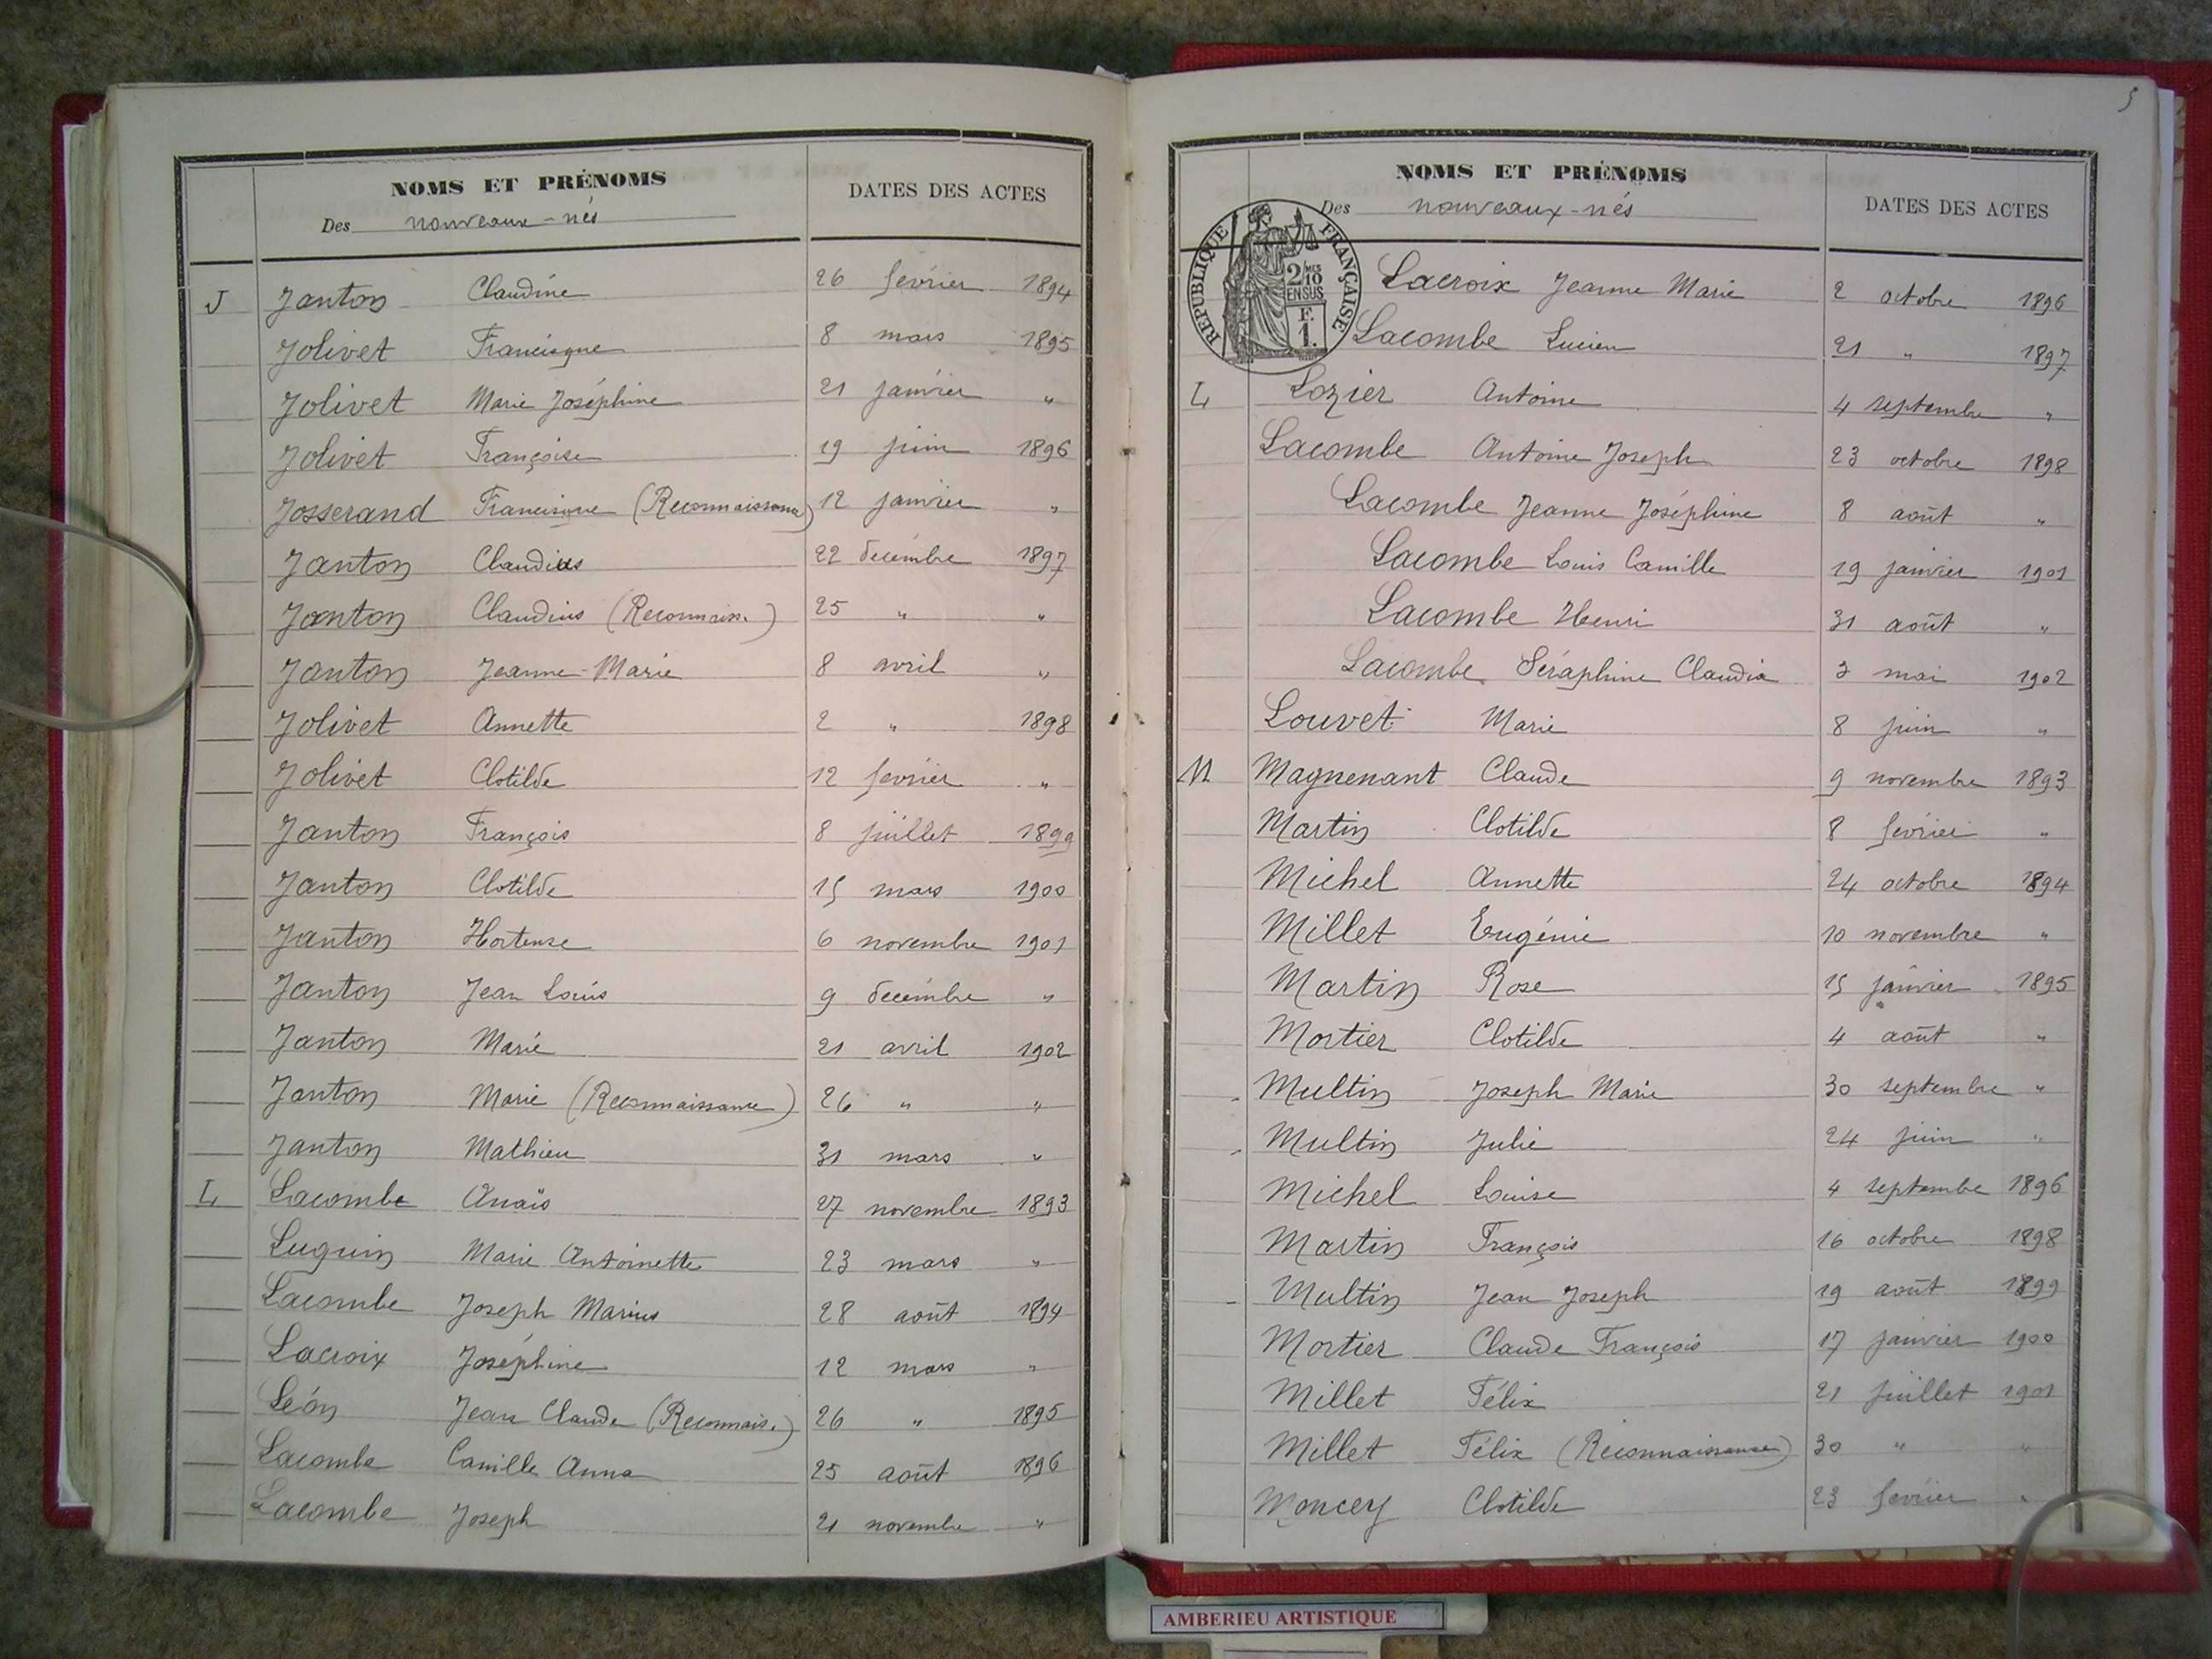 NOMS ET PRÉNOMS
Des nouveaux-nés
DATES DES ACTES
J Janton Claudine 26 fevrier 1894
Jolivet Francisque 8 mars 1895
Jolivet Marie Joséphine 21 janvier "
Jolivet Françoise 19 juin 1896
Josserand Francisque (Reconnaissance) 12 janvier "
Janton Claudius 22 decembre 1897
Janton Claudius (Reconnais.) 25 " "
Janton Jeanne-Marie 8 avril "
Jolivet Annette 2 " 1898
Jolivet Clotilde 12 fevrier "
Janton François 8 juillet 1899
Janton Clotilde 15 mars 1900
Janton Hortense 6 novembre 1901
Janton Jean Louis 9 decembre "
Janton Marie 21 avril 1902
Janton Marie (Reconnaissance) 26 " "
Janton Mathieu 31 mars "
L Lacombe Anaïs 27 novembre 1893
Luguin Marie Antoinette 23 mars "
Lacombe Joseph Marius 28 août 1894
Lacroix Joséphine 12 mars "
Léon Jean Claude (Reconnais.) 26 " 1895
Lacombe Camille Anna 25 août 1896
Lacombe Joseph 21 novembre "
5
NOMS ET PRÉNOMS
Des nouveaux-nés
DATES DES ACTES
REPUBLIQUE FRANÇAISE
2/10 MES
EN SUS
F.
1.
Lacroix Jeanne Marie 2 octobre 1896
Lacombe Lucien 21 " 1897
L Lozier Antoine 4 septembre "
Lacombe Antoine Joseph 23 octobre 1898
Lacombe Jeanne Joséphine 8 août "
Lacombe Louis Camille 19 janvier 1901
Lacombe Henri 31 août "
Lacombe Séraphine Claudia 3 mai 1902
Louvet Marie 8 juin "
M Magnenant Claude 9 novembre 1893
Martin Clotilde 8 fevrier "
Michel Annette 24 octobre 1894
Millet Eugénie 10 novembre "
Martin Rose 15 janvier 1895
Mortier Clotilde 4 août "
Multin Joseph Marie 30 septembre "
Multin Julie 24 juin "
Michel Louise 4 septembre 1896
Martin François 16 octobre 1898
Multin Jean Joseph 19 août 1899
Mortier Claude François 17 janvier 1900
Millet Félix 21 juillet 1901
Millet Félix (Reconnaissance) 30 " "
Moncey Clotilde 23 fevrier "
AMBERIEU ARTISTIQUE